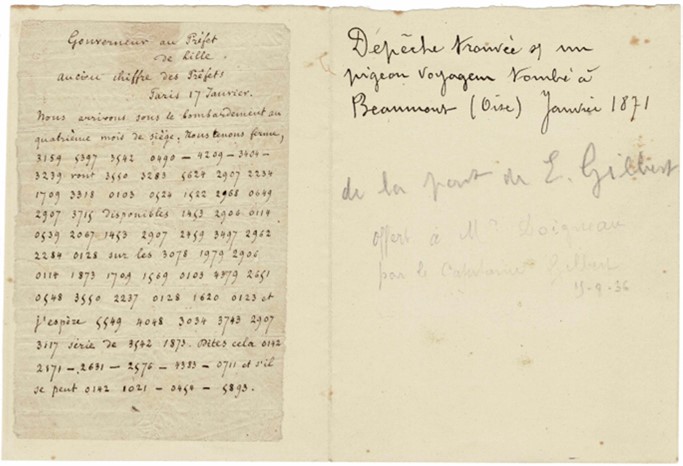 Gouverneur au Préfet
de Lille
ancien chiffre des Préfets
Paris 17 Janvier.
Nous arrivons sous le bombardement au
quatrième mois de siège. Nous tenons ferme,
3159 5397 3542 0490 – 4209 – 3404 –
3239 vont 3550 3283 5624 2907 2234
1709 3318 0103 0524 1522 2968 0649
2907 3715 disponibles 1453 2906 0114
0539 2067 1453 2907 2459 3497 2962
2284 0128 sur les 3078 1979 2906
0114 1873 1709 1569 0103 4379 2651
0548 3550 2237 0128 1620 0123 et
j'espère 5549 4048 3034 3743 2907
3117 série de 3542 1873. Dites cela 0142
2171 – 2631 – 2576 – 4383 – 0711 et s'il
se peut 0142 1021 – 0454 – 5893.
Dépêche trouvée s/ un
pigeon voyageur tombé à
Beaumont (Oise) Janvier 1871
de la part de E. Gilbert
offert à Mr
par le Capitaine Gilbert
15-9-36